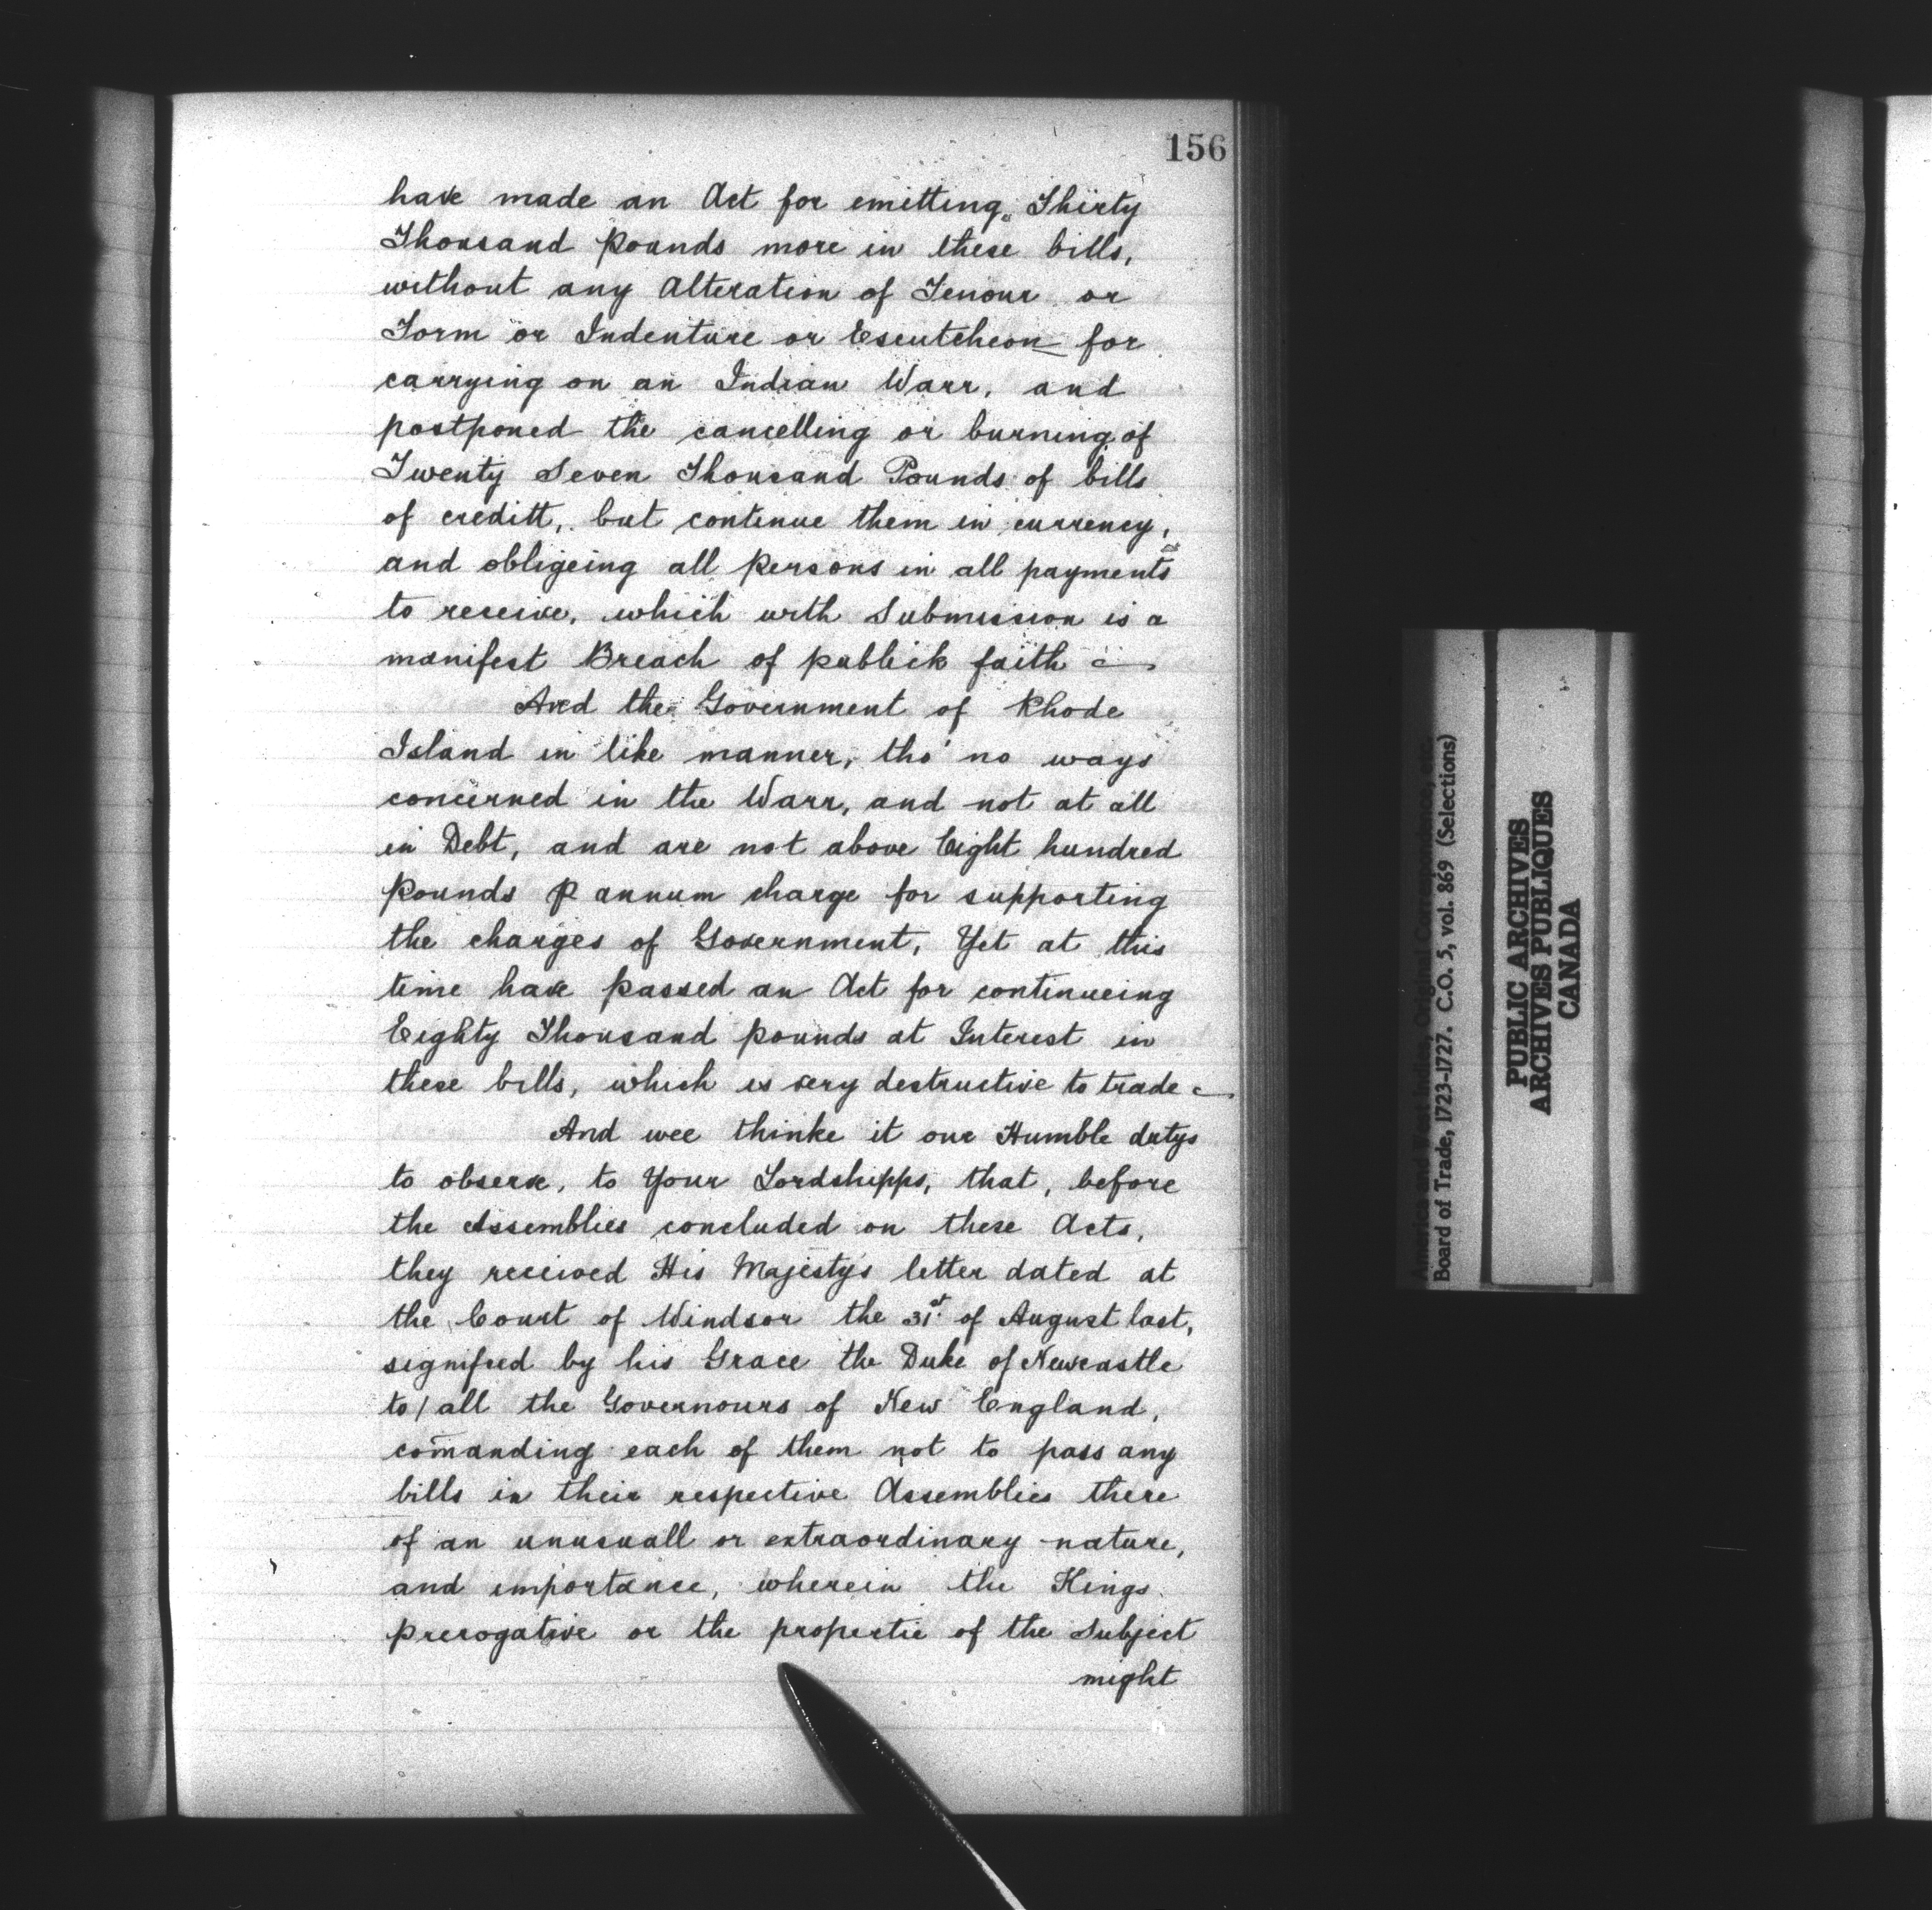 156
have made an Act for emitting Thirty
Thousand pounds more in these bills,
without any Alteration of Tenour or
Form or Indenture or Escutcheon for
carrying on an Indian Warr, and
postponed the cancelling or burning of
Twenty Seven Thousand Pounds of bills
of creditt, but continue them in currency,
and obligeing all persons in all payments
to receive, which with Submission is a
manifest Breach of publick faith
And the Government of Rhode
Island in like manner, tho' no ways
concerned in the Warr, and not at all
in Debt, and are not above Eight hundred
pounds p annum charge for supporting
the charges of Government, Yet at this
time have passed an Act for continueing
Eighty Thousand pounds at Interest in
these bills, which is very destructive to trade
And wee thinke it our Humble dutys
to observe, to Your Lordshipps, that, before
the Assemblies concluded on these Acts,
they received His Majestys letter dated at
the Court of Windsor the 31st of August last,
signified by his Grace the Duke of Newcastle
to / all the Governours of New England,
com̄anding each of them not to pass any
bills in their respective Assemblies there
of an unusuall or extraordinary nature,
and importance, wherein the Kings
prerogative or the propertie of the Subject
might
America and West Indies, Original Correspondence,
Board of Trade, 1723-1727. C.O. 5, vol. 869 (Selections)
PUBLIC ARCHIVES
ARCHIVES PUBLIQUES
CANADA